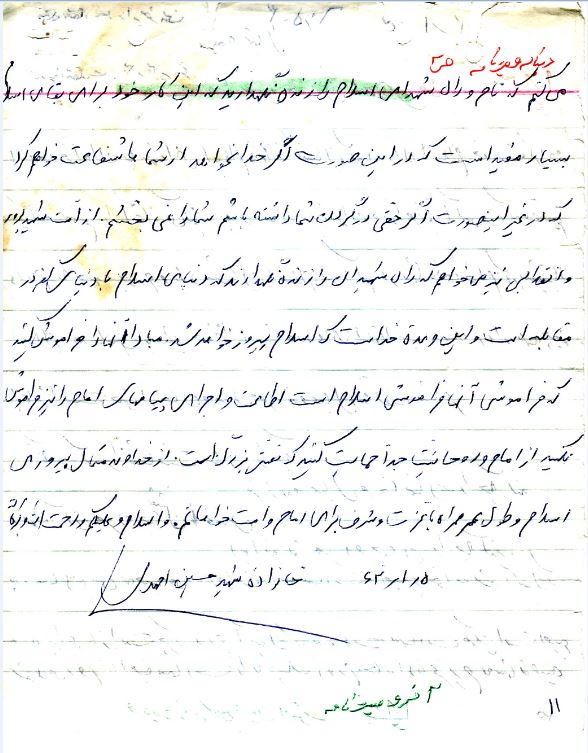 دنباله وصیتنامه ص ۳
می کنم که نام و راه شهدای اسلام را زنده نگهدارید که این کار خود برای بقای اسلام
بسیار مفید است که در این صورت اگر خدا بخواهد از شما ها شفاعت خواهم کرد
که در غیر اینصورت اگر حقی در گردن شما داشته باشم شما را نمی بخشم. از امت شهید پرور
و انقلابی نیز می خواهم که راه شهیدان را زنده نگهدارند که دنیای اسلام با دنیای کفر در
مقابله است و این وعده خداست که اسلام پیروز خواهد شد. مبادا آنها را فراموش کنید
که فراموشی آنها فراموشی اسلام است اطاعت و اجرای پیامهای امام را نیز فراموش
نکنید از امام و روحانیت حتماً حمایت کنید که نعمتی بزرگ است. از خداوند متعال پیروزی
اسلام و طول عمر همراه با عزت و شرف برای امام و امت خواهانم. والسلام و علیکم و رحمت الله و برکاته
۶۲/۱/۱۵ خانواده شهید حسین احمدی
آخر وصیتنامه
۱۱